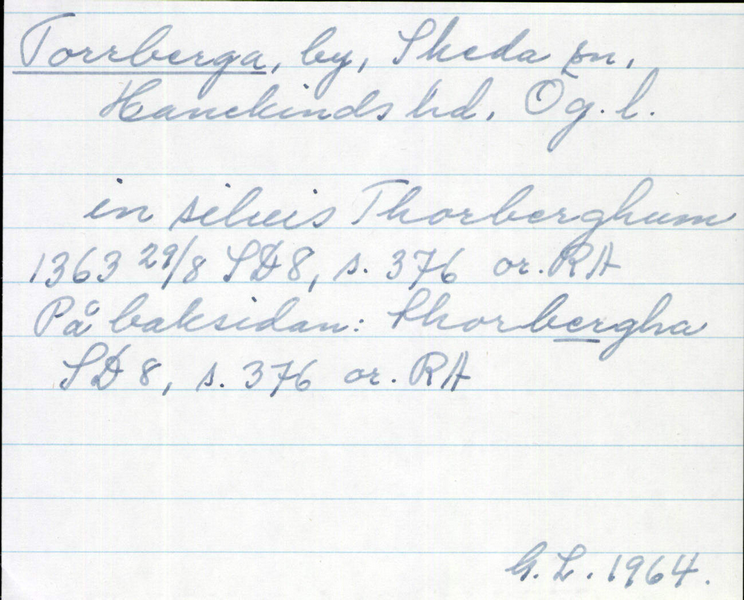 Torrberga, by, Skeda sn,
Hanekinds hd, Ög. l.
in siluis Thorberghum
1363 29/8 SD 8, s. 376 or. RA
På baksidan: thorbergha
SD 8, s. 376 or. RA
G. L. 1964.